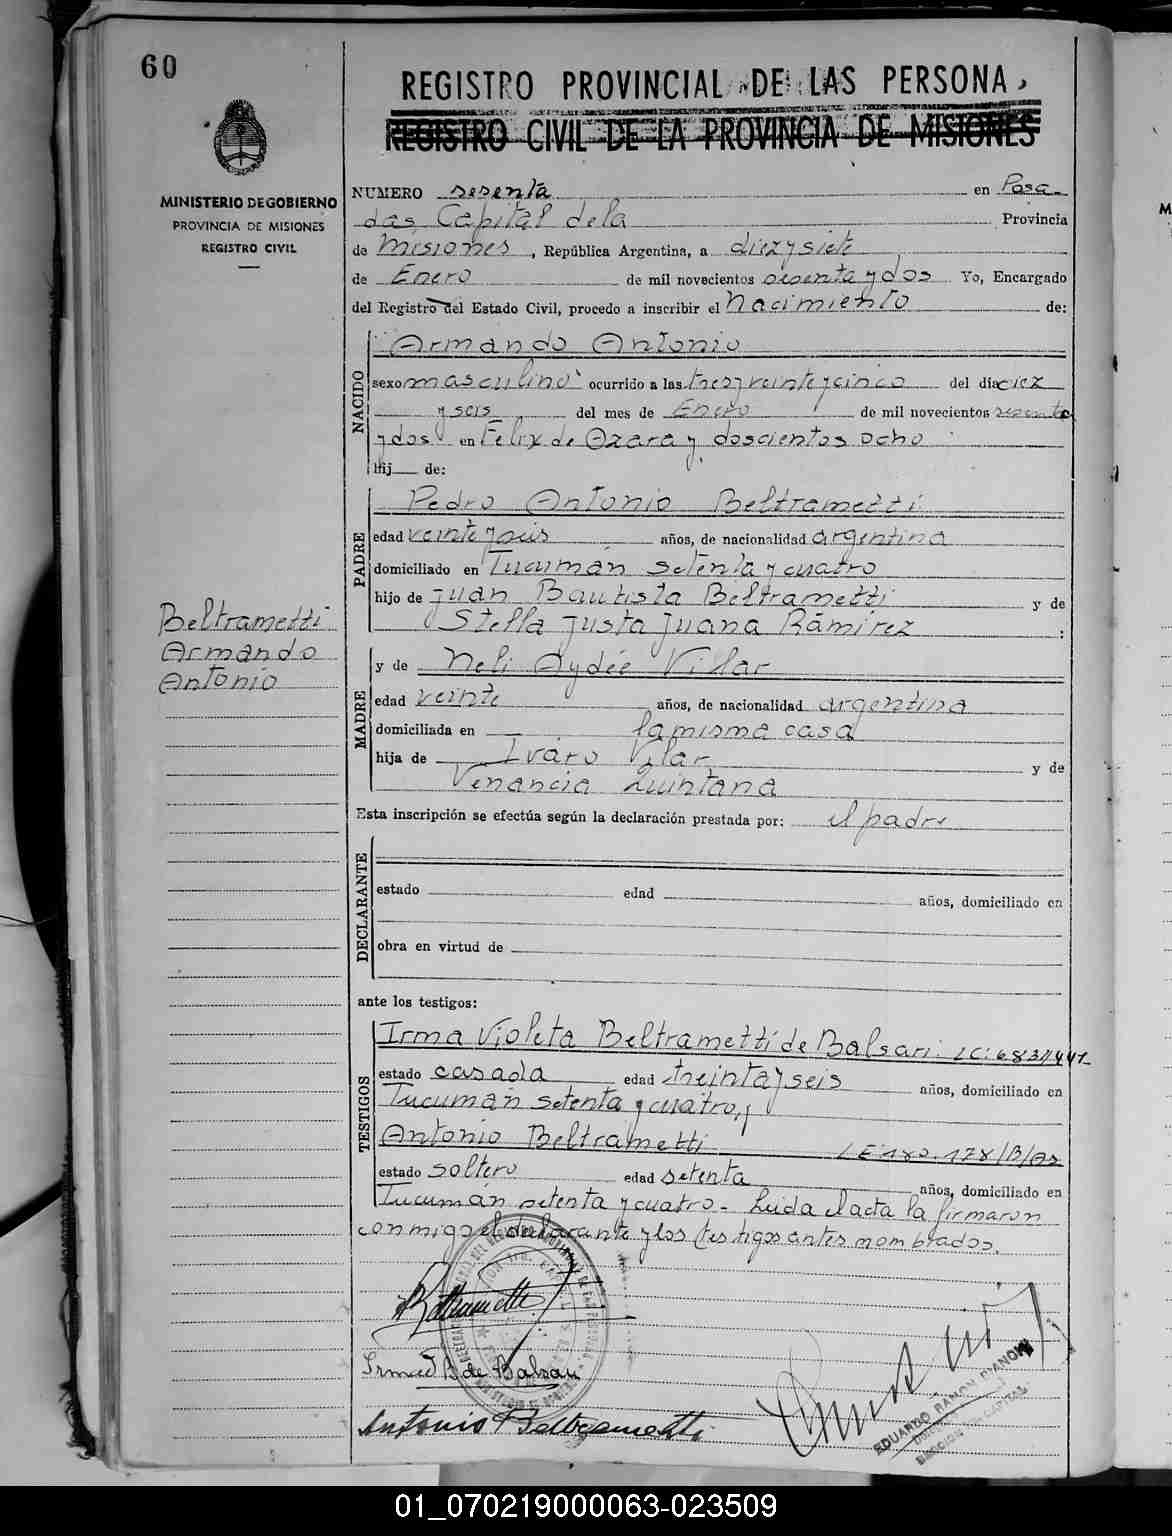 60
REGISTRO PROVINCIAL DE LAS PERSONA
REGISTRO CIVIL DE LA PROVINCIA DE MISIONES
MINISTERIO DE GOBIERNO
PROVINCIA DE MISIONES
REGISTRO CIVIL
NUMERO sesenta en Posa-
das Capital de la Provincia
de Misiones, República Argentina, a diez y siete
de Enero de mil novecientos sesenta y dos Yo, Encargado
del Registro del Estado Civil, procedo a inscribir el Nacimiento de:
NACIDO
Armando Antonio
sexo masculino ocurrido a las tres y veinte y cinco del dia diez
y seis del mes de Enero de mil novecientos sesenta
y dos en Felix de Azara y doscientos ocho
hij de:
PADRE
Pedro Antonio Beltrametti
edad veinte y seis años, de nacionalidad argentina
domiciliado en Tucumán setenta y cuatro
hijo de Juan Bautista Beltrametti y de
Stella Justa Juana Ramírez :
Beltrametti
Armando
Antonio
MADRE
y de Neli Aydée Villar
edad veinte años, de nacionalidad argentina
domiciliada en la misma casa
hija de Vilar y de
Venancia Quintana
Esta inscripción se efectúa según la declaración prestada por: el padre
DECLARANTE
estado edad años, domiciliado en
obra en virtud de
ante los testigos:
TESTIGOS
Irma Violeta Beltrametti de Balsari
estado casada edad treinta y seis años, domiciliado en
Tucumán setenta y cuatro y
Antonio Beltrametti
estado soltero edad setenta años, domiciliado en
Tucumán setenta y cuatro - Leida el acta la firmaron
conmigo el declarante y los testigos antes nombrados.
Beltrametti
B de Balsari
Antonio Beltrametti
EDUARDO RAMON
CAPITAL
01_070219000063-023509